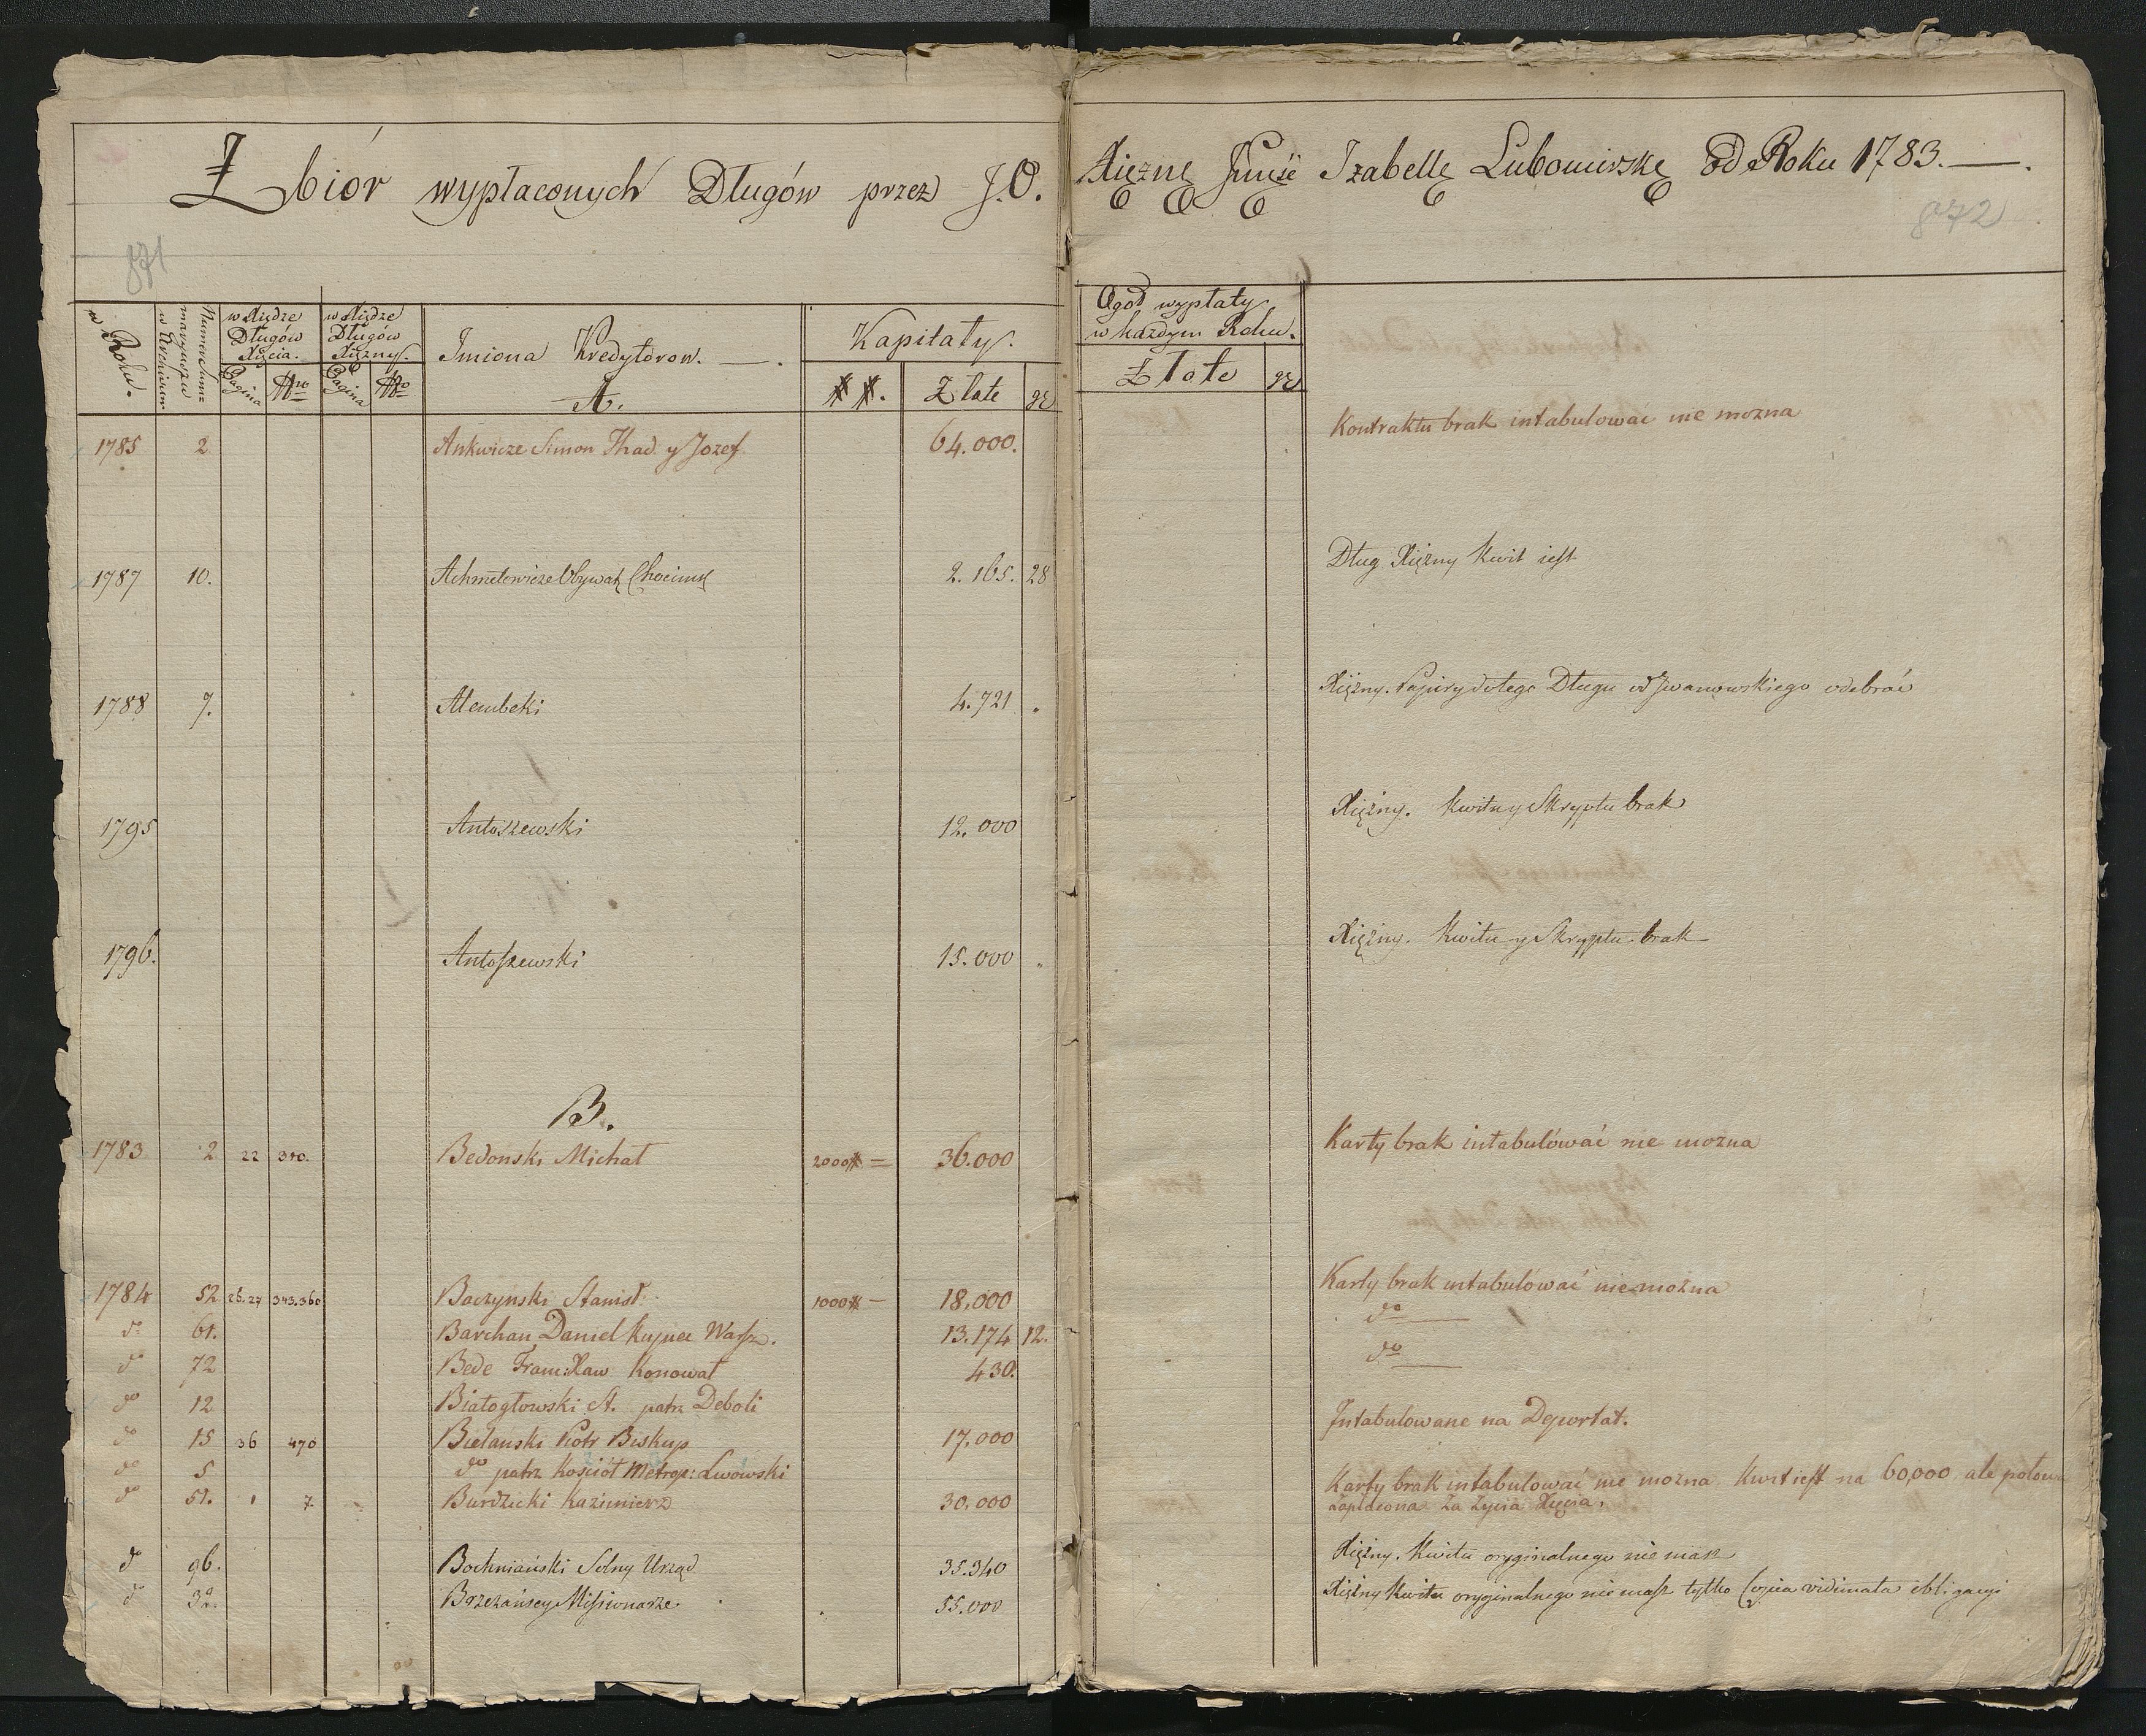 Zbiór wypłaconych Długów przez J.O. Xiężnę Jmcię Izabellę Lubomirskę od Roku 1783.
871
872
w Roku.
Numer Summaryuszu w Archivum
w Xiędze Długów Xięcia.
w Xiędze Długów Xiężny.
Pagina
Nro
Pagina
Nro
Imiona Kredytorow.
Kapitały.
##.
Złote
gr
Ogół wypłaty w każdym Roku.
Złote
gr
A.
1785 2 Ankwicze Simon Thad. y Jozef. 64.000. Kontraktu brak intabulowac nie mozna
1787 10. Achmetowicze Obywat. Chocimsc 2.165. 28 Dług Xiężny kwit iest
1788 7. Alembeki 4.721 „ Xiężny. Papiery do tego Długu od Iwanowskiego odebrać
1795 Antoszewski 12.000 Xiężny. Kwitu y Skryptu brak
1796. Antoszewski 15.000 „ Xiężny. Kwitu y Skryptu brak
B.
1783 2 22 310. Bedonski Michał 2000# = 36.000 Karty brak intabulówać nie mozna
1784 52 26.27 343.360 Baczynski Stanisł: 1000# – 18,000 Karty brak intabulówać nie mozna
do 61. Barchan Daniel kupiec Warsz. 13.174 12. do
do 72 Bede Franciszaw Konował 430. do
do 12 Białogłowski A. patrz Deboli
do 15 36 470 Bielanski Piotr Biskup 17.000 Intabulowane na Deportat.
do 5 do patrz Kościół Metrop: Lwówski
do 51. 1 7. Burdzicki Kazimierz 30.000 Karty brak intabulować nie mozna. Kwit iest na 60,000 ale połowa
zapłacona za życia Xięcia.
do 96. Bochniański Solny Urząd 35.340 Xiężny. Kwitu oryginalnego nie masz
do 32. Brzezańscy Missionarze. 55.000 Xiężny Kwitu oryginalnego nie masz tylko Copia vidimata obligacyi